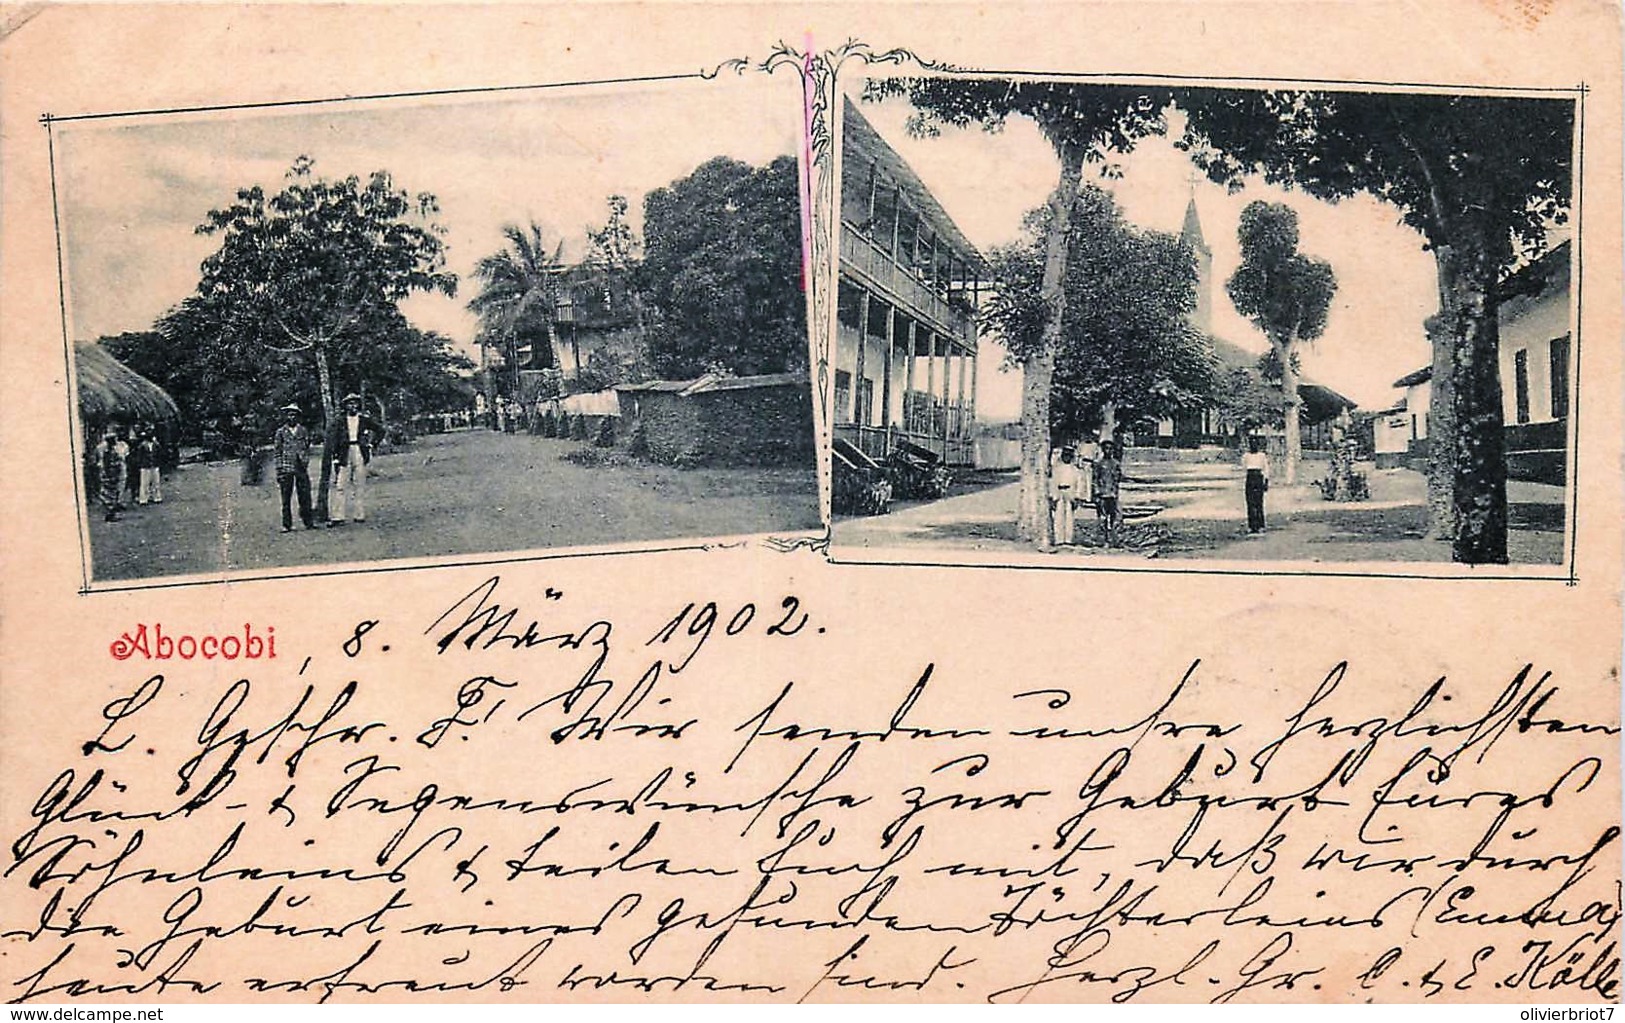 Abocobi, 8. März 1902.
L. Geschw. F.! Wir senden unsre herzlichsten
Glück- & Segenswünsche zur Geburt Eures
Söhnleins & teilen Euch mit, daß wir durch
die Geburt eines gesunden Töchterleins (Emma)
heute erfreut worden sind. Herzl. Gr. C. & E. Kölle
delcampe.net
olivierbriot7